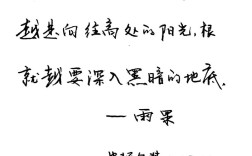 越是向往高处的阳光,根
就越要深入黑暗的地底.
— 雨果